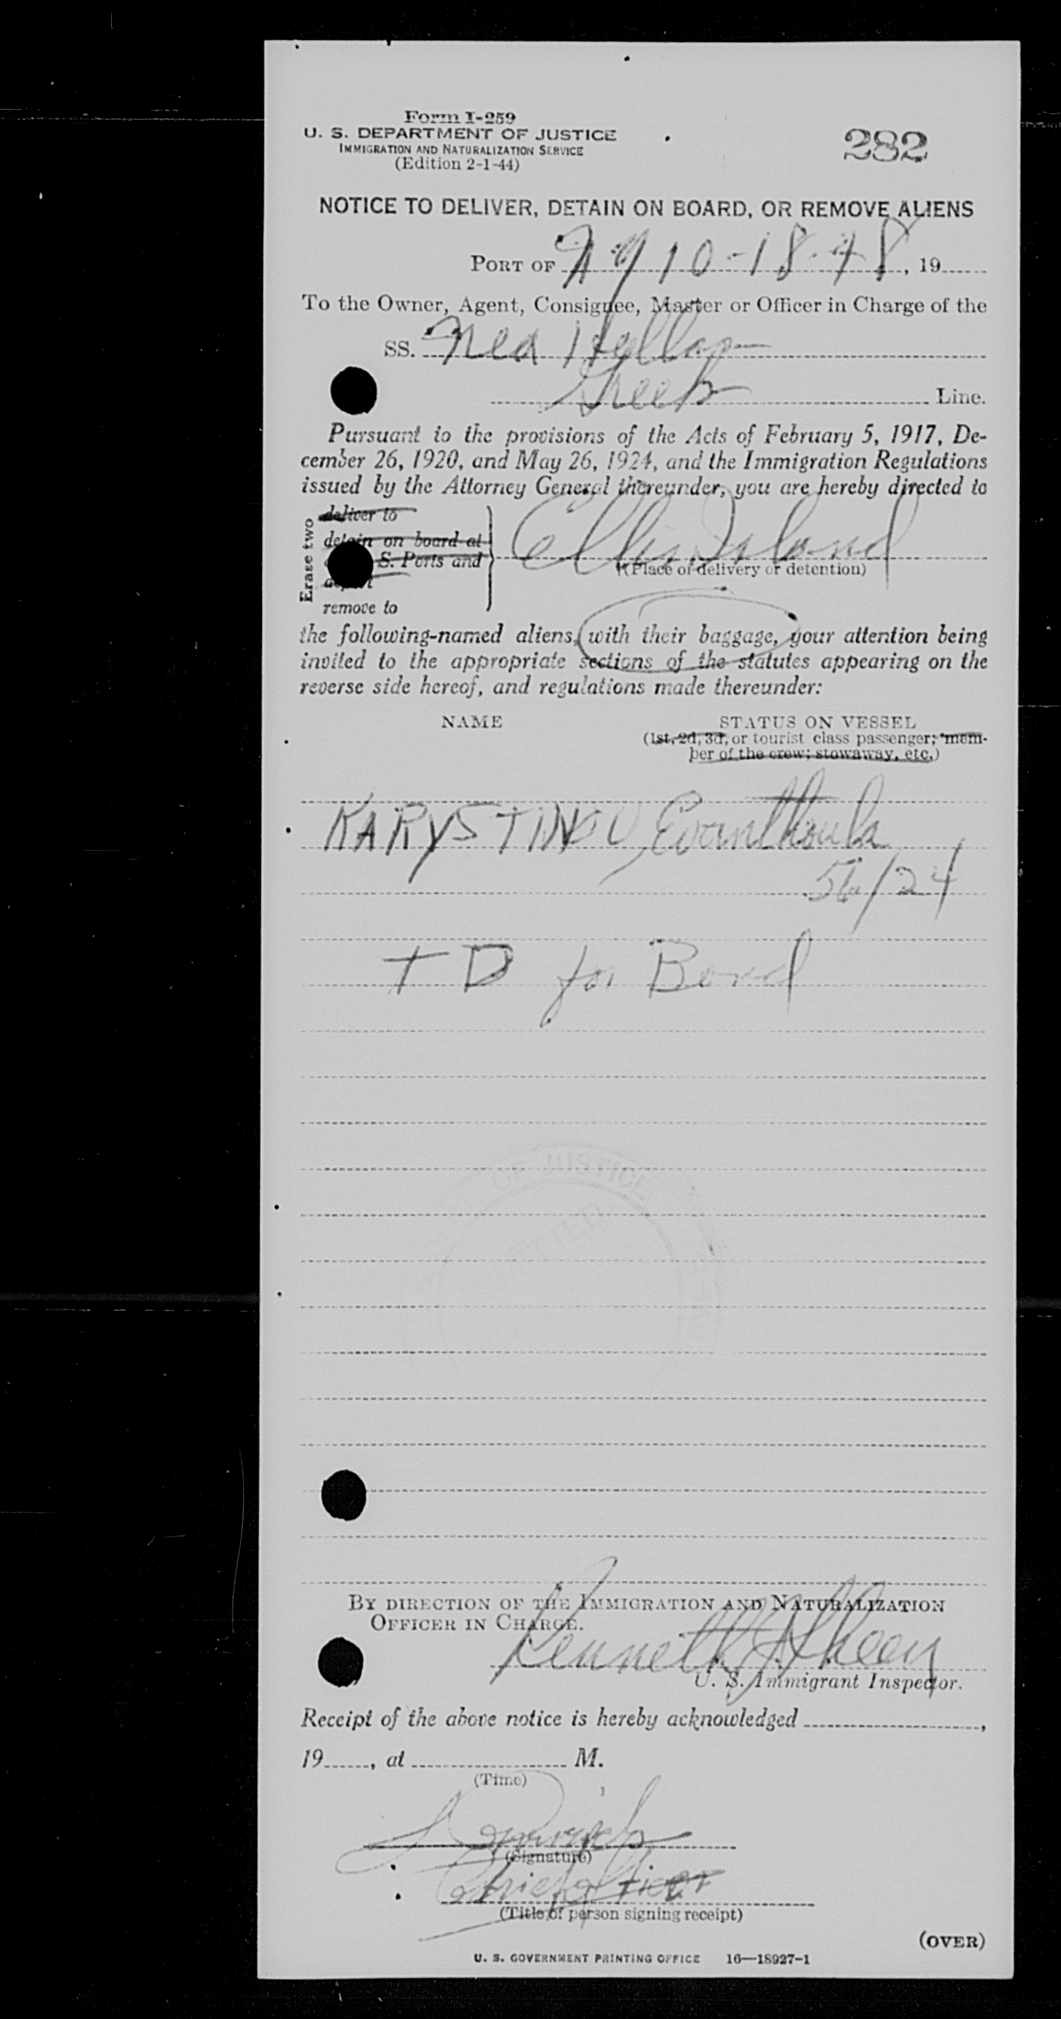 Form I-259
U. S. DEPARTMENT OF JUSTICE
IMMIGRATION AND NATURALIZATION SERVICE
(Edition 2-1-44)
282
NOTICE TO DELIVER, DETAIN ON BOARD, OR REMOVE ALIENS
PORT OF NY 10-18-48, 19
To the Owner, Agent, Consignee, Master or Officer in Charge of the
SS. Nea Hellas
Greek Line.
Pursuant to the provisions of the Acts of February 5, 1917, De-
cember 26, 1920, and May 26, 1924, and the Immigration Regulations
issued by the Attorney General thereunder, you are hereby directed to
Erase two
deliver to
detain on board at
S. Ports and
remove to
Ellis Island
(Place of delivery or detention)
the following-named aliens, with their baggage, your attention being
invited to the appropriate sections of the statutes appearing on the
reverse side hereof, and regulations made thereunder:
NAME
STATUS ON VESSEL
(1st, 2d, 3d, or tourist class passenger; mem-
ber of the crew; stowaway, etc.)
KARYSTINOU, Evanthoula
56/24
TD for Bond
OF JUSTICE
BY DIRECTION OF THE IMMIGRATION AND NATURALIZATION
OFFICER IN CHARGE.
Kenneth J Sheen
U. S. Immigrant Inspector.
Receipt of the above notice is hereby acknowledged ,
19 , at M.
(Time)
(Signature)
Chief officer
(Title of person signing receipt)
(OVER)
U. S. GOVERNMENT PRINTING OFFICE 16—18927-1